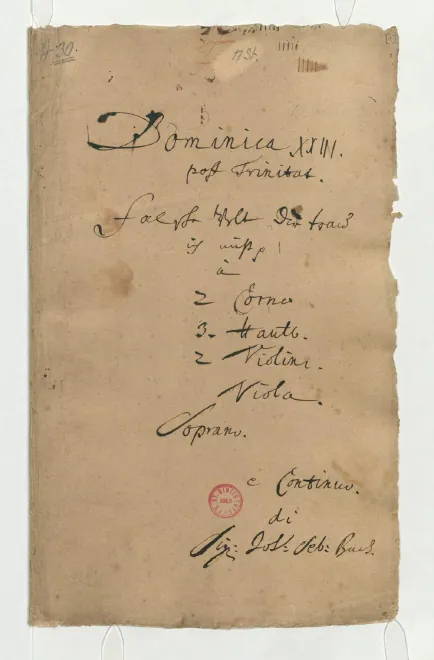 30.
13 St.
Dominica XXIII.
post Trinitat.
Falsche Welt Dir trau
ich nicht!
à
2 Corne
3. Hautb.
2 Violini.
Viola.
Soprano.
e Continuo.
di
Sig: Joh: Seb: Bach.